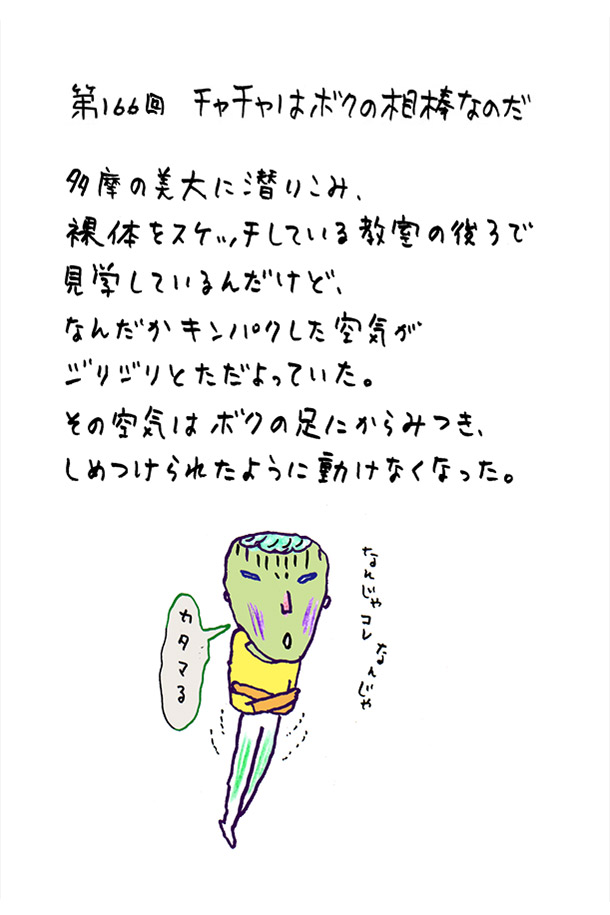 第166回 チャチャはボクの相棒なのだ
多摩の美大に潜りこみ、
裸体をスケッチしている教室の後ろで
見学しているんだけど、
なんだかキンパクした空気が
ジリジリとただよっていた。
その空気はボクの足にからみつき、
しめつけられたように動けなくなった。
なんじゃコレなんじゃ
カタマる